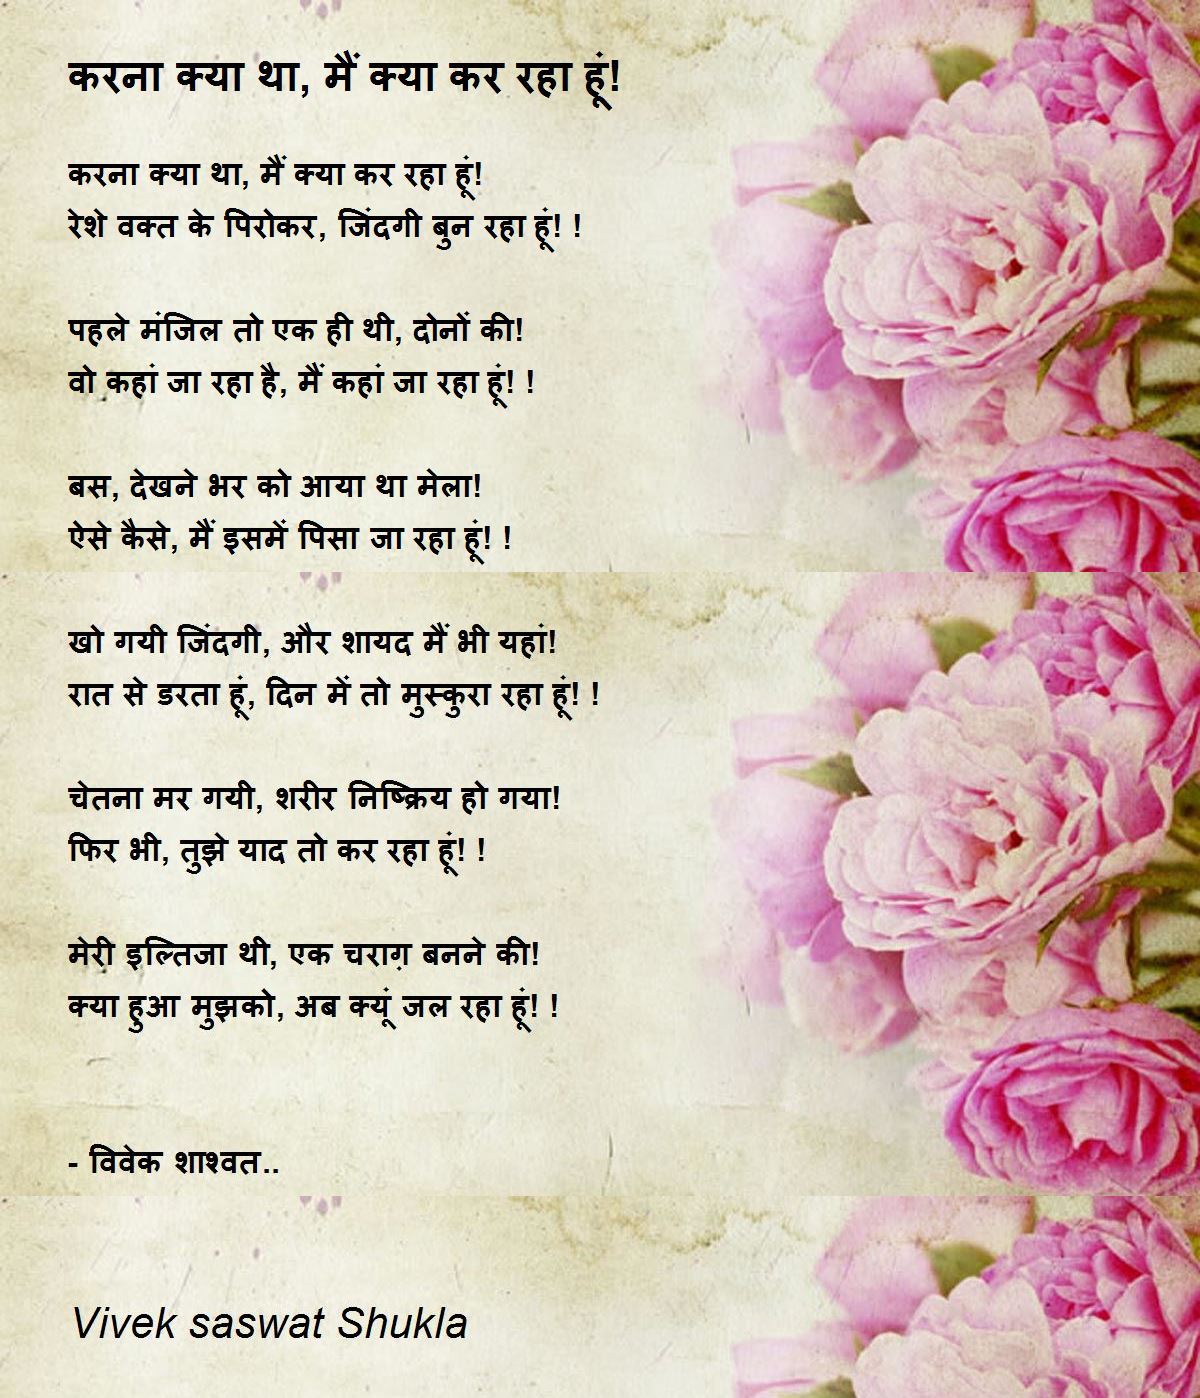 करना क्या था, मैं क्या कर रहा हूं!
करना क्या था, मैं क्या कर रहा हूं!
रेशे वक्त के पिरोकर, जिंदगी बुन रहा हूं! !
पहले मंजिल तो एक ही थी, दोनों की!
वो कहां जा रहा है, मैं कहां जा रहा हूं! !
बस, देखने भर को आया था मेला!
ऐसे कैसे, मैं इसमें पिसा जा रहा हूं! !
खो गयी जिंदगी, और शायद मैं भी यहां!
रात से डरता हूं, दिन में तो मुस्कुरा रहा हूं! !
चेतना मर गयी, शरीर निष्क्रिय हो गया!
फिर भी, तुझे याद तो कर रहा हूं! !
मेरी इल्तिजा थी, एक चराग़ बनने की!
क्या हुआ मुझको, अब क्यूं जल रहा हूं! !
- विवेक शाश्वत..
Vivek saswat Shukla